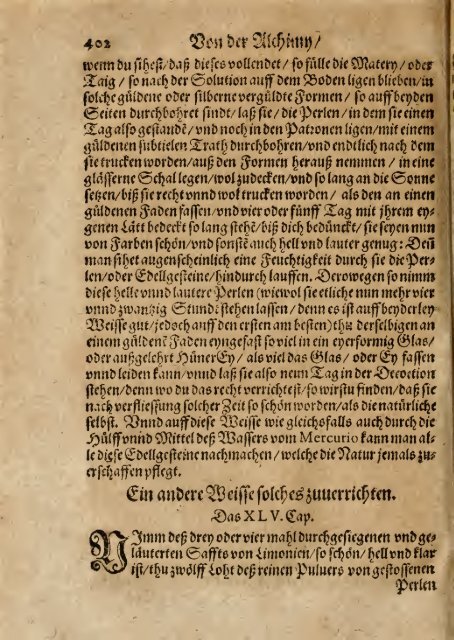 402 Von der Alchimy/
wenn du sihest/ daß dieses vollendet/ so fülle die Matery/ oder
Taig/ so nach der Solution auff dem Boden ligen blieben/ in
solche güldene oder silberne vergüldte Formen/ so auff beyden
Seiten durchbohret sindt/ laß sie/ die Perlen/ in dem sie einen
Tag also gestandẽ/ vnd noch in den Patronen ligen/ mit einem
güldenen subtielen Trath durchbohren/ vnd endtlich nach dem
sie trucken worden/ auß den Formen herauß nemmen/ in eine
gläßerne Schal legen/ wol zudecken/ vnd so lang an die Sonne
setzen/ biß sie recht vnnd wol trucken worden/ als den an einen
güldenen Faden fassen/ vnd vier oder fünff Tag mit jhrem ey-
genen Lätt bedeckt so lang stehẽ/ biß dich bedünckt/ sie seyen nun
von Farben schön/ vnd sonstẽ auch hell vnd lauter genug: Deñ
man sihet augenscheinlich eine Feuchtigkeit durch sie die Per-
len/ oder Edellgesteine/ hindurch lauffen. Derowegen so nimm
diese helle vnnd lautere Perlen (wiewol sie etliche nun mehr vier
vnnd zwantzig Stundẽ stehen lassen/ denn es ist auff beyderley
Weisse gut/ jedoch auff den ersten am besten) thu derselbigen an
einem güldenẽ Faden eyngefast so viel in ein eyerformig Glas/
oder außgelehrt Hüner Ey/ als viel das Glas/ oder Ey fassen
vnnd leiden kann/ vnnd laß sie also neun Tag in der Decoction
stehen/ denn wo du das recht verrichtest/ so wirstu finden/ daß sie
nach verfliessung solcher Zeit so schön worden/ als die natürliche
selbst. Vnnd auff diese Weisse wie gleichsfalls auch durch die
Hülff vnnd Mittel deß Wassers vom Mercurio kann man al-
le diese Edellgesteine nachmachen/ welche die Natur jemals zu-
erschaffen pflegt.
Ein andere Weisse solches zuuerrichten.
Das XLV. Cap.
NImm deß drey oder vier mahl durchgesiegenen vnd ge-
läuterten Saffts von Limonien/ so schön/ hell vnd klar
ist/ thu zwölff Loht deß reinen Puluers von gestossenen
Perlen